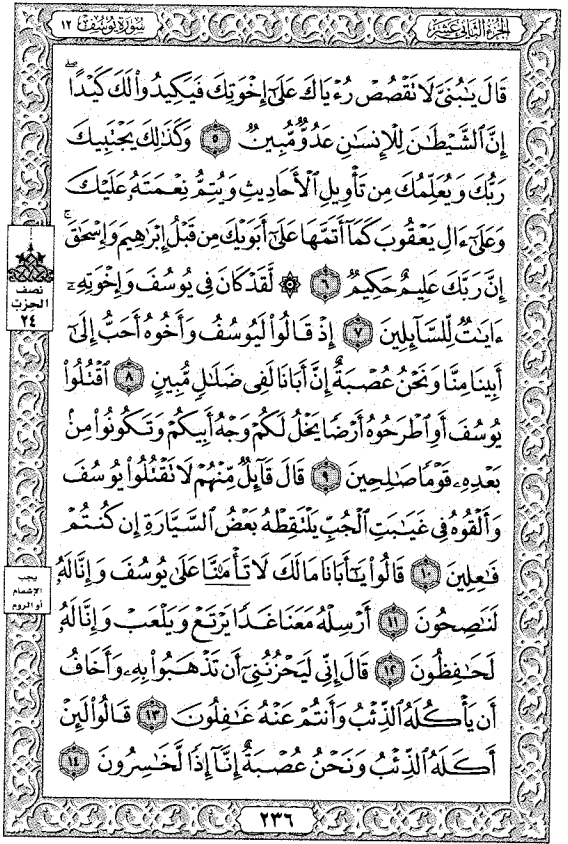 سورة يوسف ١٢
الجزء الثاني عشر
قَالَ يَٰبُنَىَّ لَا تَقْصُصْ رُءْيَاكَ عَلَىٰٓ إِخْوَتِكَ فَيَكِيدُوا۟ لَكَ كَيْدًا ۖ
إِنَّ ٱلشَّيْطَٰنَ لِلْإِنسَٰنِ عَدُوٌّ مُّبِينٌ ٥ وَكَذَٰلِكَ يَجْتَبِيكَ
رَبُّكَ وَيُعَلِّمُكَ مِن تَأْوِيلِ ٱلْأَحَادِيثِ وَيُتِمُّ نِعْمَتَهُۥ عَلَيْكَ
وَعَلَىٰٓ ءَالِ يَعْقُوبَ كَمَآ أَتَمَّهَا عَلَىٰٓ أَبَوَيْكَ مِن قَبْلُ إِبْرَٰهِيمَ وَإِسْحَٰقَ ۚ
إِنَّ رَبَّكَ عَلِيمٌ حَكِيمٌ ٦ ۞ لَّقَدْ كَانَ فِى يُوسُفَ وَإِخْوَتِهِۦٓ
ءَايَٰتٌ لِّلسَّآئِلِينَ ٧ إِذْ قَالُوا۟ لَيُوسُفُ وَأَخُوهُ أَحَبُّ إِلَىٰٓ
أَبِينَا مِنَّا وَنَحْنُ عُصْبَةٌ إِنَّ أَبَانَا لَفِى ضَلَٰلٍ مُّبِينٍ ٨ ٱقْتُلُوا۟
يُوسُفَ أَوِ ٱطْرَحُوهُ أَرْضًا يَخْلُ لَكُمْ وَجْهُ أَبِيكُمْ وَتَكُونُوا۟ مِنۢ
بَعْدِهِۦ قَوْمًا صَٰلِحِينَ ٩ قَالَ قَآئِلٌ مِّنْهُمْ لَا تَقْتُلُوا۟ يُوسُفَ
وَأَلْقُوهُ فِى غَيَٰبَتِ ٱلْجُبِّ يَلْتَقِطْهُ بَعْضُ ٱلسَّيَّارَةِ إِن كُنتُمْ
فَٰعِلِينَ ١٠ قَالُوا۟ يَٰٓأَبَانَا مَا لَكَ لَا تَأْمَ۫نَّا عَلَىٰ يُوسُفَ وَإِنَّا لَهُۥ
لَنَٰصِحُونَ ١١ أَرْسِلْهُ مَعَنَا غَدًا يَرْتَعْ وَيَلْعَبْ وَإِنَّا لَهُۥ
لَحَٰفِظُونَ ١٢ قَالَ إِنِّى لَيَحْزُنُنِىٓ أَن تَذْهَبُوا۟ بِهِۦ وَأَخَافُ
أَن يَأْكُلَهُ ٱلذِّئْبُ وَأَنتُمْ عَنْهُ غَٰفِلُونَ ١٣ قَالُوا۟ لَئِنْ
أَكَلَهُ ٱلذِّئْبُ وَنَحْنُ عُصْبَةٌ إِنَّآ إِذًا لَّخَٰسِرُونَ ١٤
نصف
الحزب
٢٤
يجب
الإشمام
أو الروم
٢٣٦